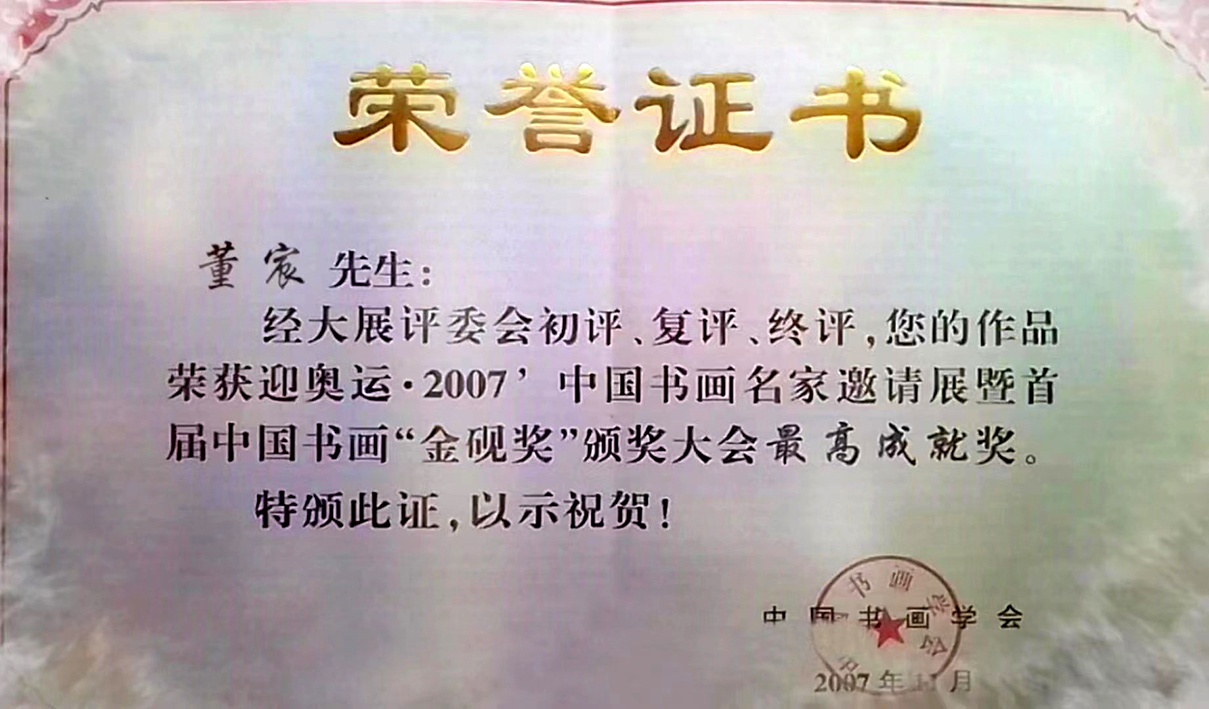 荣誉证书
董宸 先生：
经大展评委会初评、复评、终评,您的作品
荣获迎奥运·2007’中国书画名家邀请展暨首
届中国书画“金砚奖”颁奖大会最高成就奖。
特颁此证,以示祝贺!
中国书画学会
2007年11月